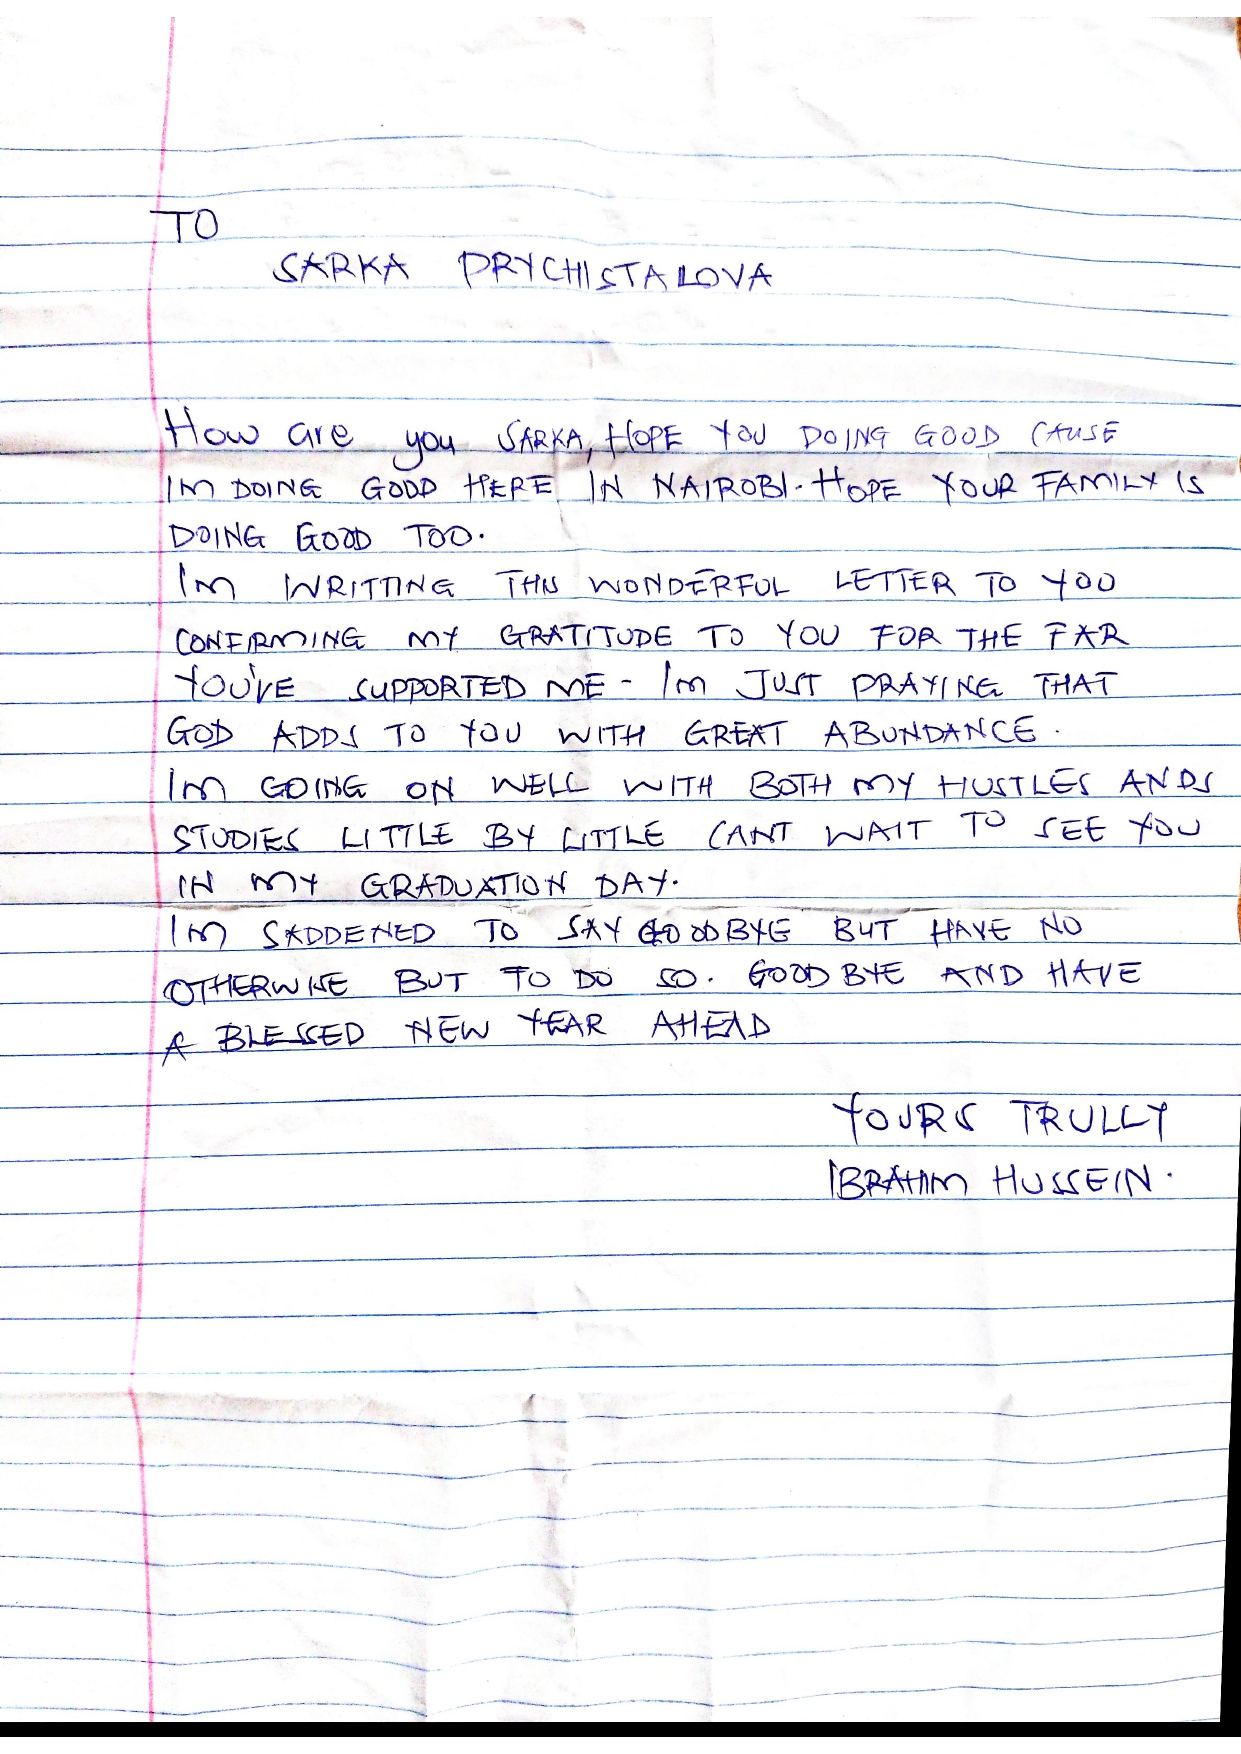 TO
SARKA PRYCHISTALOVA
How are you SARKA, HOPE YOU DOING GOOD CAUSE
IM DOING GOOD HERE IN NAIROBI. HOPE YOUR FAMILY IS
DOING GOOD TOO.
IM WRITTING THIS WONDERFUL LETTER TO YOU
CONFIRMING MY GRATITUDE TO YOU FOR THE FAR
YOU'VE SUPPORTED ME - IM JUST PRAYING THAT
GOD ADDS TO YOU WITH GREAT ABUNDANCE.
IM GOING ON WELL WITH BOTH MY HUSTLES ANDS
STUDIES LITTLE BY LITTLE CANT WAIT TO SEE YOU
IN MY GRADUATION DAY.
IM SADDENED TO SAY GOODBYE BUT HAVE NO
OTHERWISE BUT TO DO SO. GOODBYE AND HAVE
A BLESSED NEW YEAR AHEAD
YOURS TRULLY
IBRAHIM HUSSEIN.